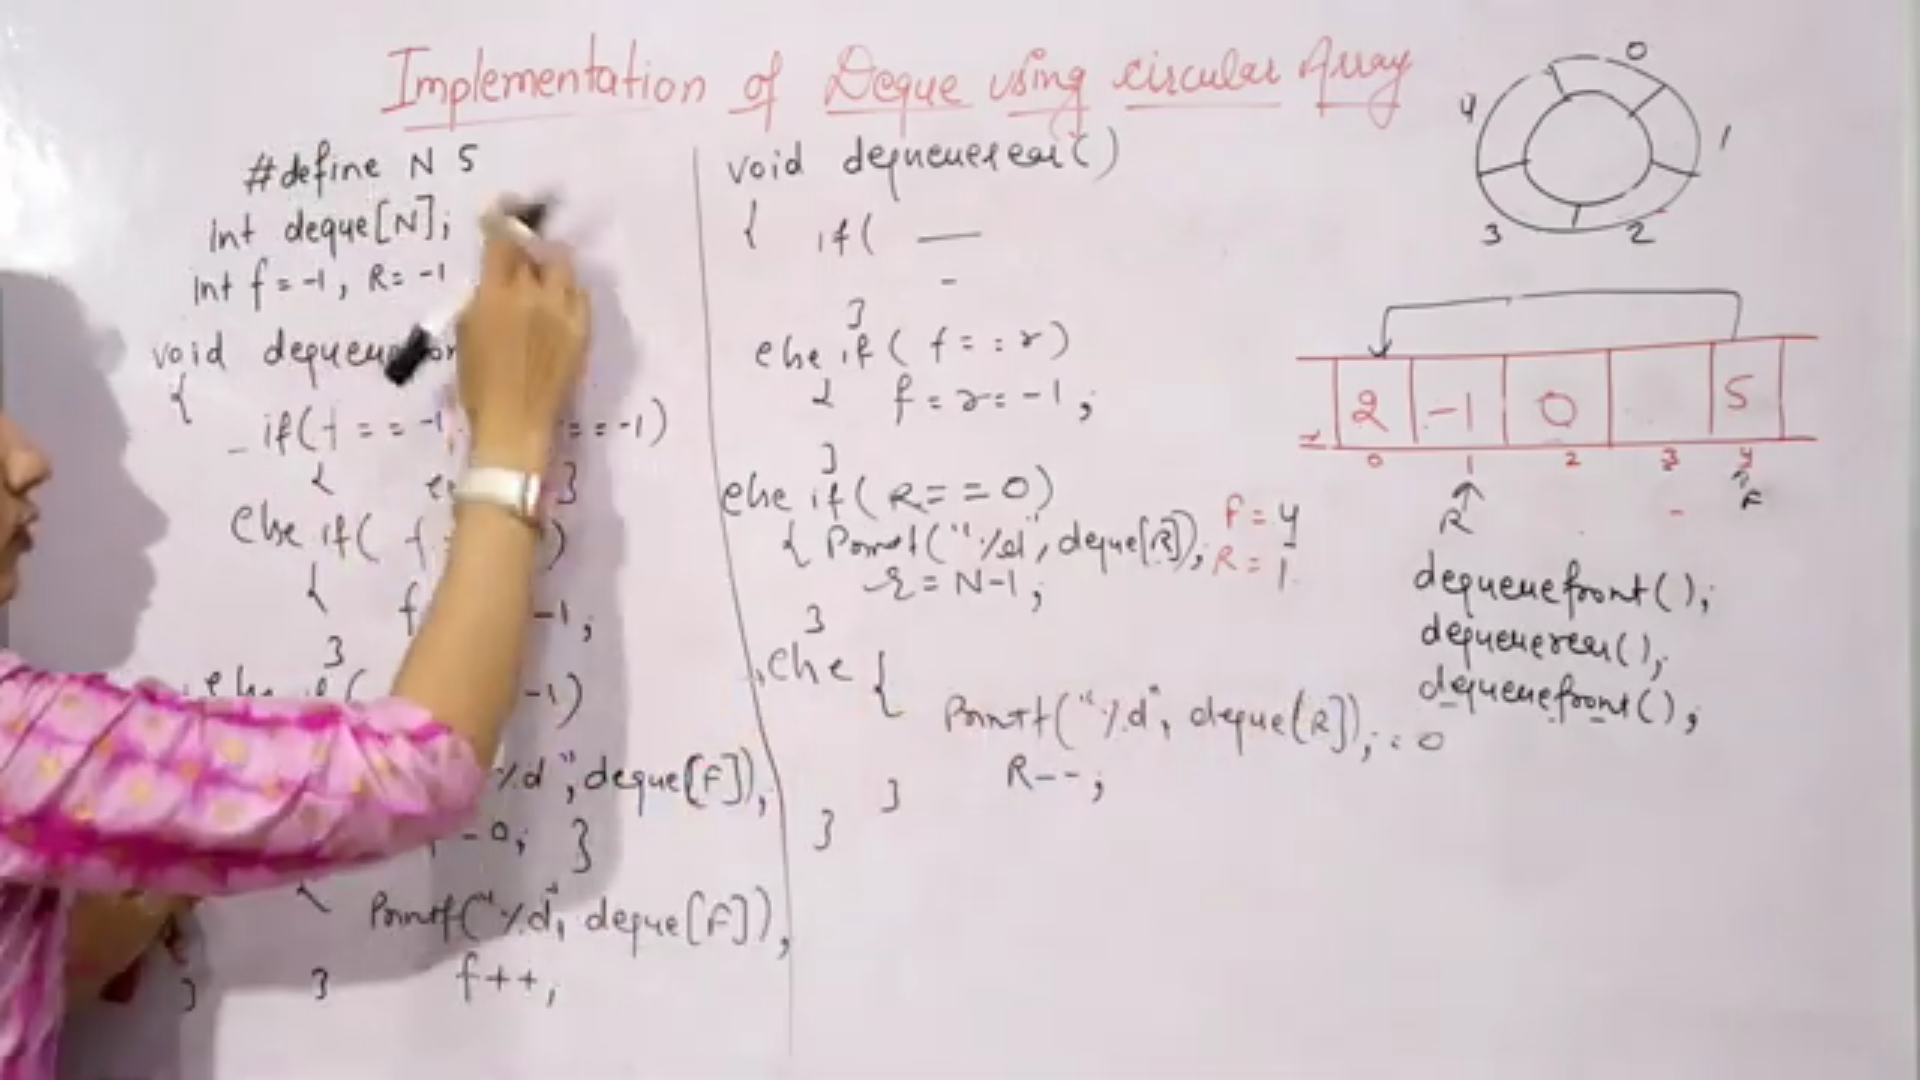 Implementation of Deque using circular Array
#define N 5
int deque[N];
int f = -1, R = -1
void
{
if(f == -1 == -1)
{ }
else if( f )
{ f -1;
}
else if( -1)
%d", deque[F]);
0; }
{
Printf("%d", deque[F]),
f++,
} }
void dequeuerear()
{ if( —
-
}
else if( f == r)
{ f = r = -1;
}
else if( R == 0)
{ Printf("%d", deque[R]);
r = N-1;
}
else {
Printf("%d", deque[R]); = 0
R--;
}
}
0
1
2
3
4
2 -1 0 5
0 1 2 3 4
R F
F = 4
R = 1
dequeuefront();
dequeuerear();
dequeuefront();